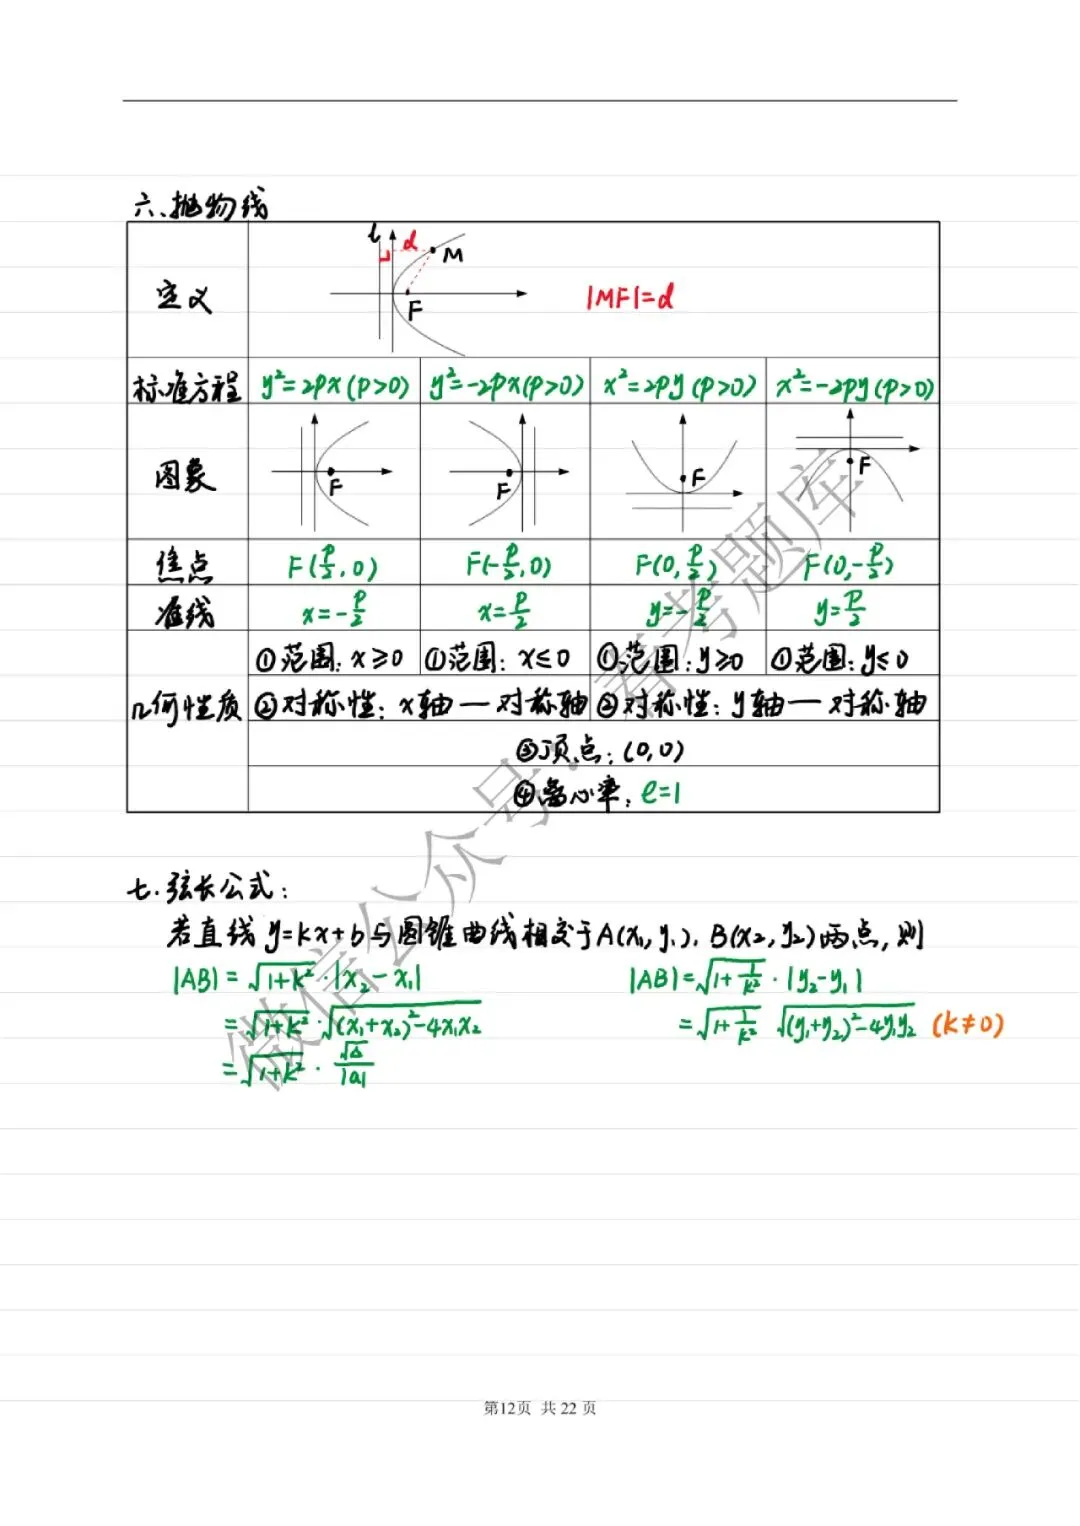 六、抛物线
定义 l d M F |MF|=d
标准方程 y²=2px(p>0) y²=-2px(p>0) x²=2py(p>0) x²=-2py(p>0)
图象 F F F F
焦点 F(p/2,0) F(-p/2,0) F(0,p/2) F(0,-p/2)
准线 x=-p/2 x=p/2 y=-p/2 y=p/2
几何性质
①范围:x≥0 ①范围:x≤0 ①范围:y≥0 ①范围:y≤0
②对称性:x轴—对称轴 ②对称性:y轴—对称轴
③顶点:(0,0)
④离心率:e=1
七.弦长公式:
若直线y=kx+b与圆锥曲线相交于A(x₁,y₁),B(x₂,y₂)两点,则
|AB|=√(1+k²)·|x₂-x₁| |AB|=√(1+1/k²)·|y₂-y₁|
=√(1+k²)·√((x₁+x₂)²-4x₁x₂) =√(1+1/k²) √((y₁+y₂)²-4y₁y₂) (k≠0)
=√(1+k²)·√Δ/|a|
微信公众号:春考题库
第12页 共 22 页